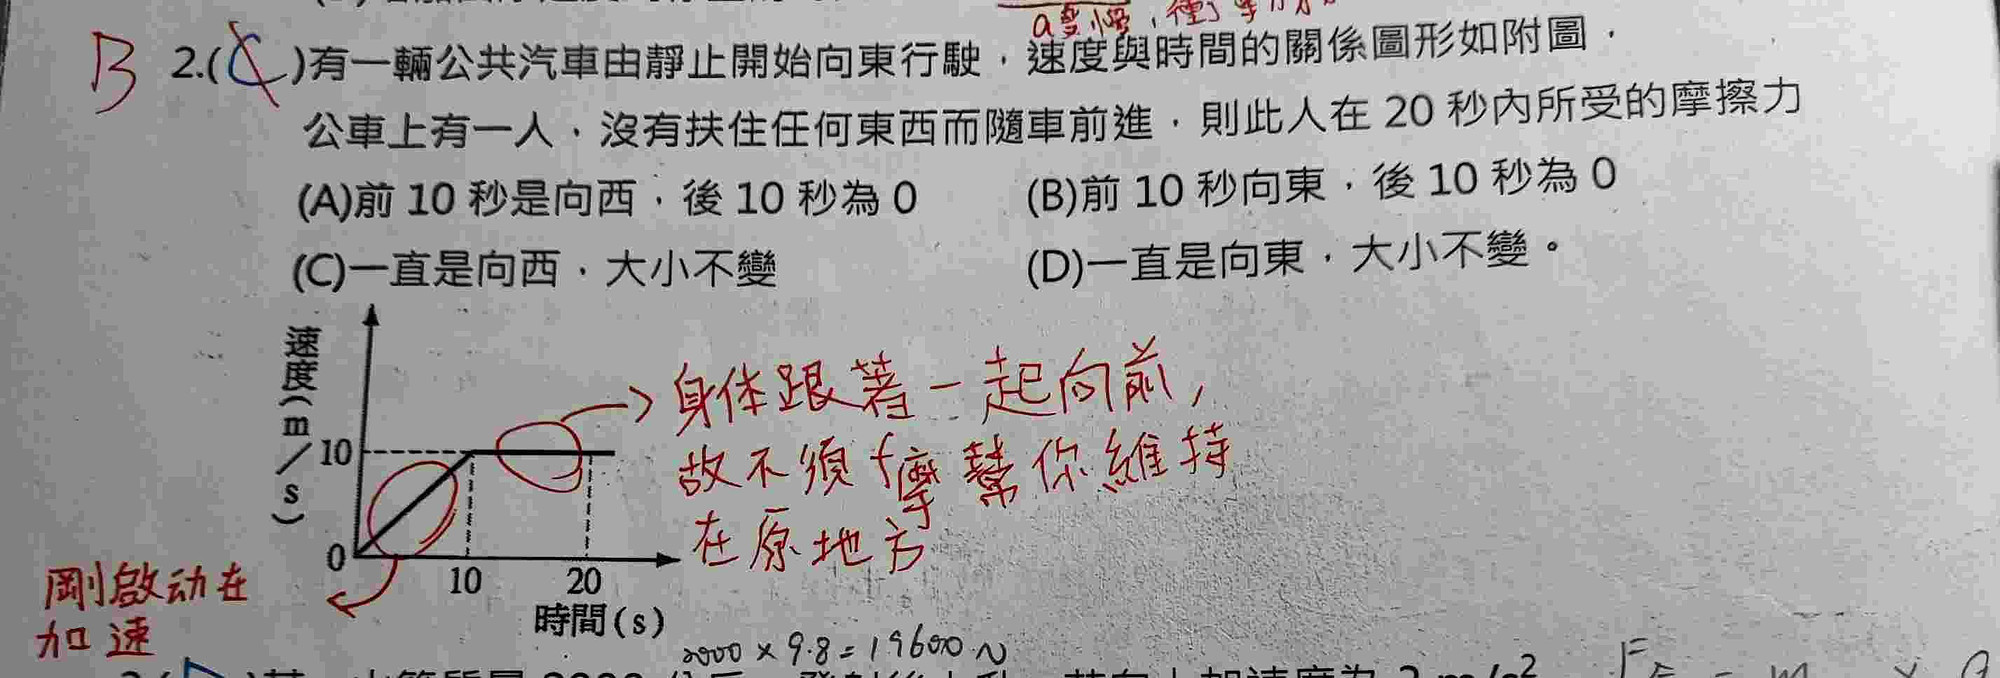 B 2.(C)有一輛公共汽車由靜止開始向東行駛，速度與時間的關係圖形如附圖．
公車上有一人，沒有扶住任何東西而隨車前進，則此人在 20 秒內所受的摩擦力
(A)前 10 秒是向西，後 10 秒為 0 (B)前 10 秒向東，後 10 秒為 0
(C)一直是向西，大小不變 (D)一直是向東，大小不變。
速度(m/s)
10
0
10 20
時間(s)
身体跟著一起向前,
故不須f摩幫你維持
在原地方
剛啟动在
加速
2000 × 9.8 = 19600 N